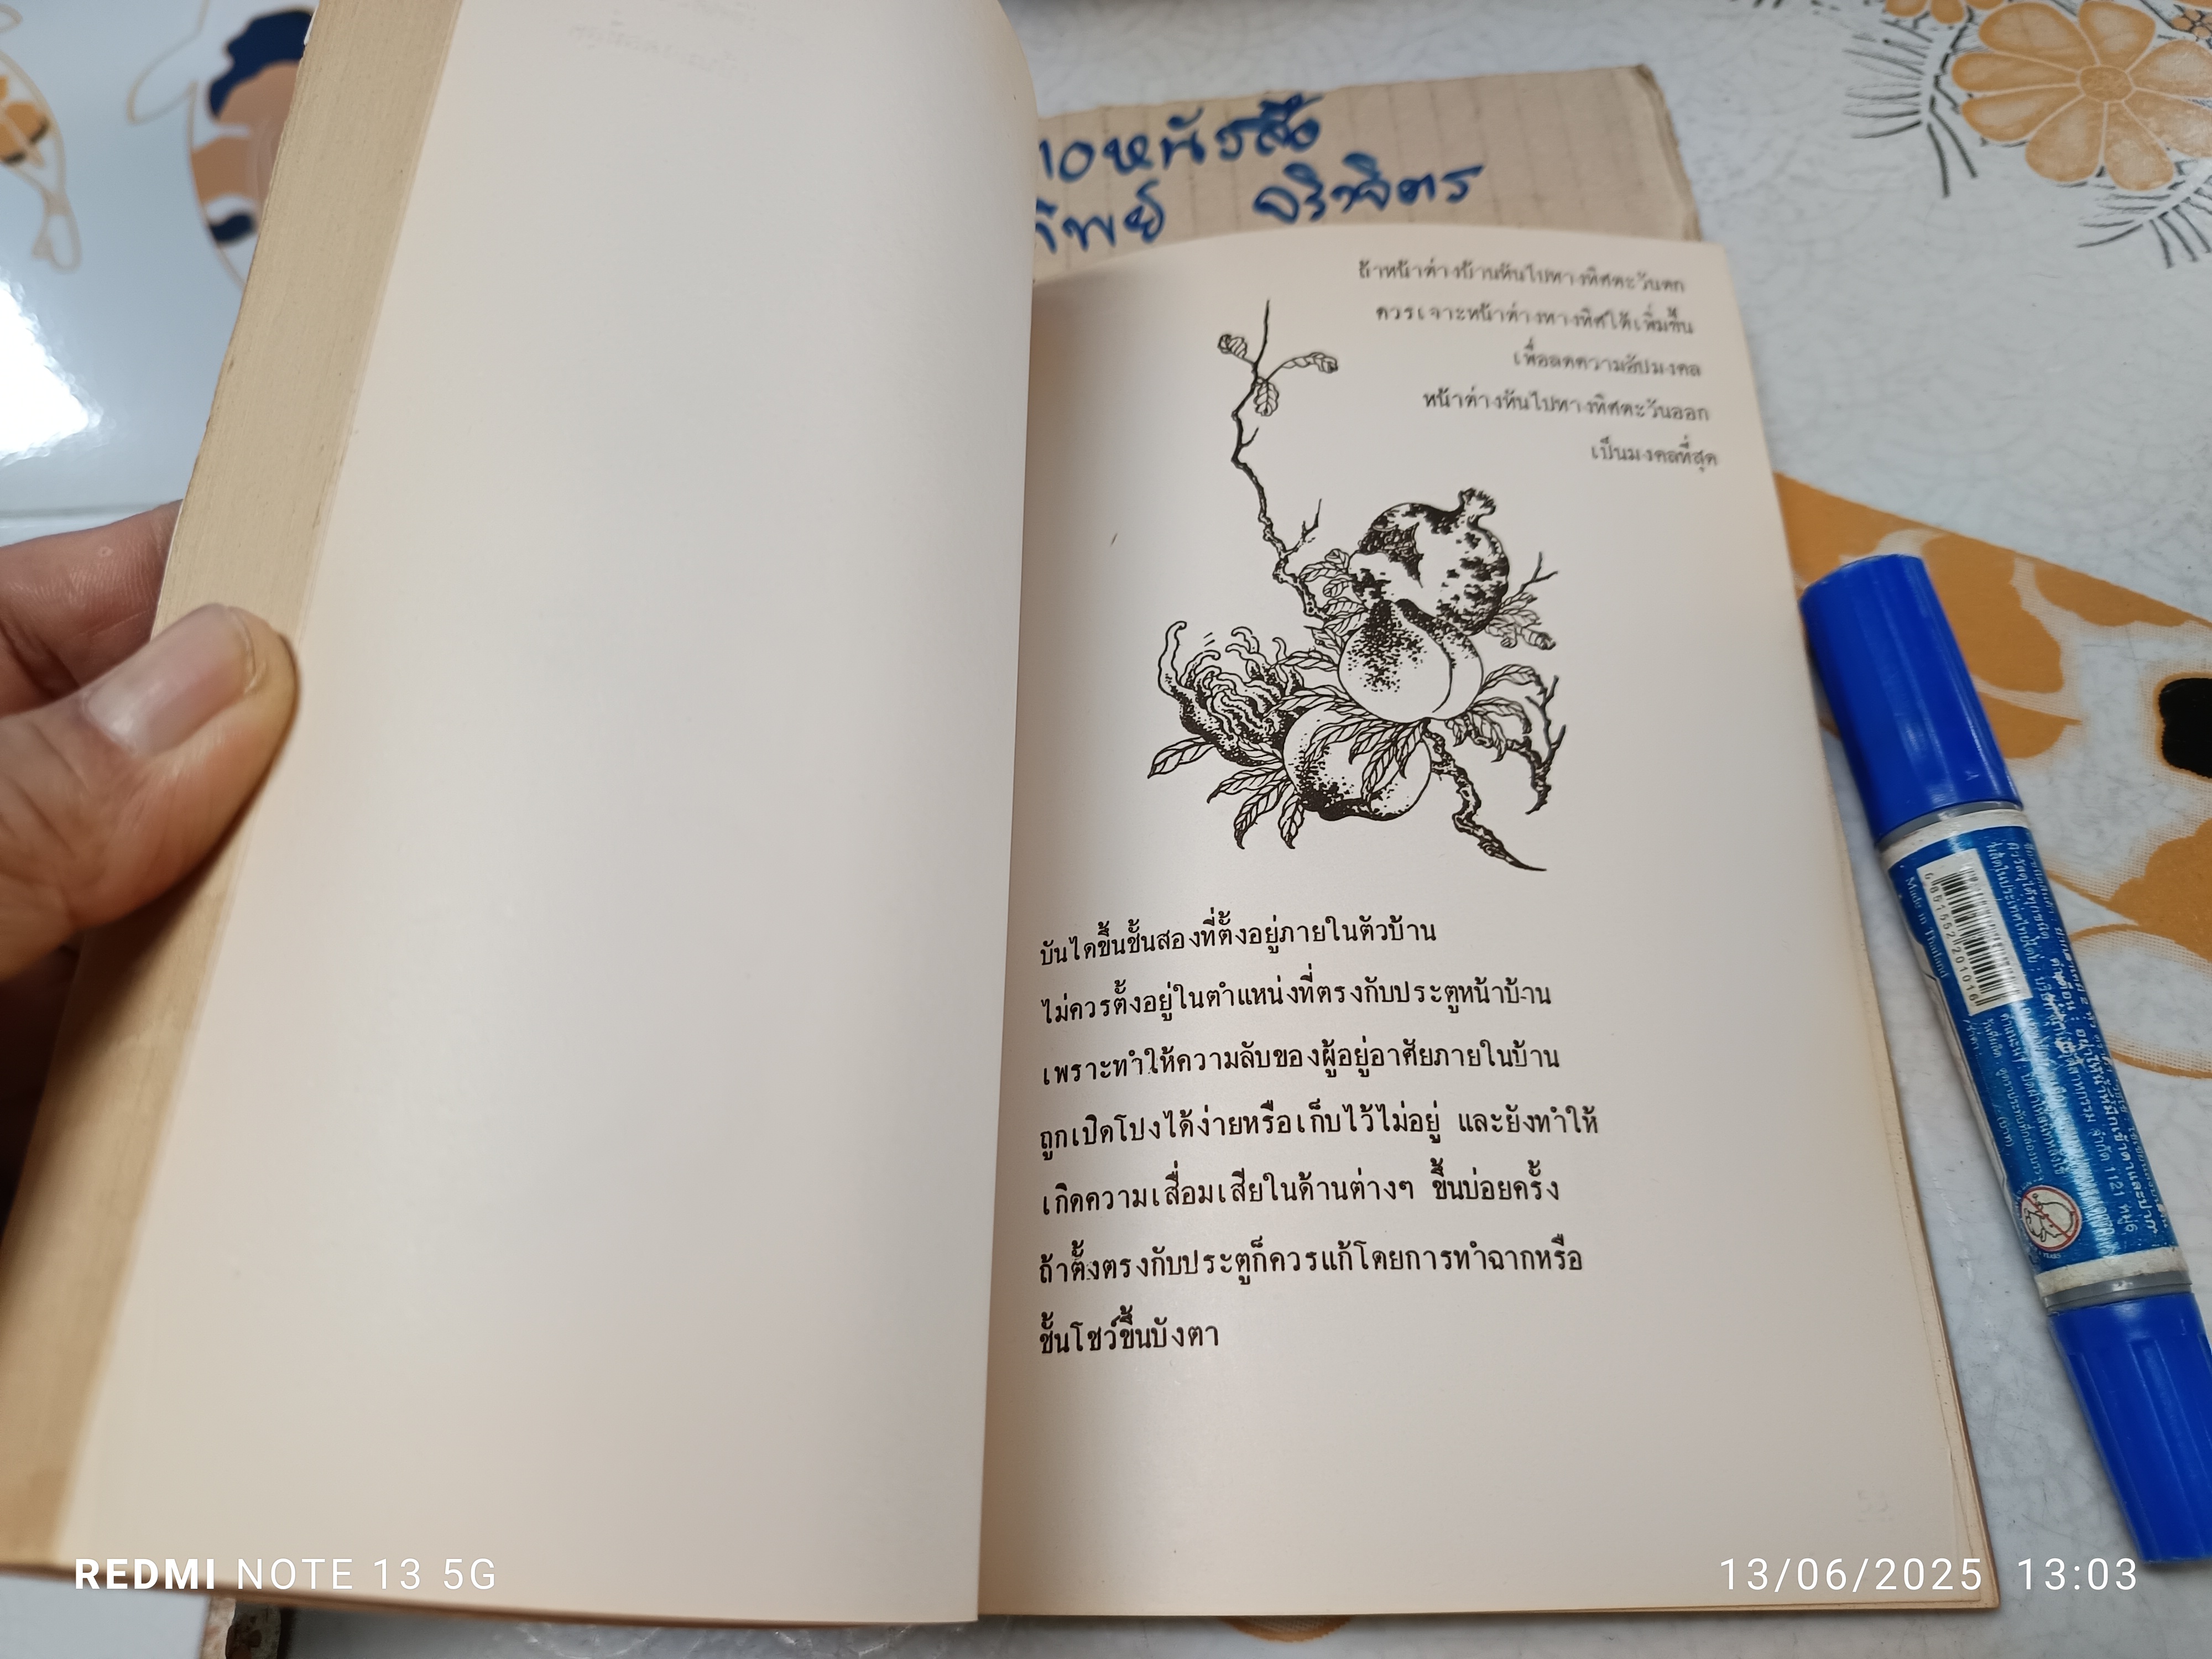 อหนังสือ
ทิพย์ จริงจิตร
ถ้าหน้าต่างบ้านหันไปทางทิศตะวันตก
ควรเจาะหน้าต่างทางทิศใต้เพิ่มขึ้น
เพื่อลดความอัปมงคล
หน้าต่างหันไปทางทิศตะวันออก
เป็นมงคลที่สุด
บันไดขึ้นชั้นสองที่ตั้งอยู่ภายในตัวบ้าน
ไม่ควรตั้งอยู่ในตำแหน่งที่ตรงกับประตูหน้าบ้าน
เพราะทำให้ความลับของผู้อยู่อาศัยภายในบ้าน
ถูกเปิดโปงได้ง่ายหรือเก็บไว้ไม่อยู่ และยังทำให้
เกิดความเสื่อมเสียในด้านต่างๆ ขึ้นบ่อยครั้ง
ถ้าตั้งตรงกับประตูก็ควรแก้โดยการทำฉากหรือ
ชั้นโชว์ขึ้นบังตา
Made in Thailand
REDMI NOTE 13 5G
13/06/2025 13:03